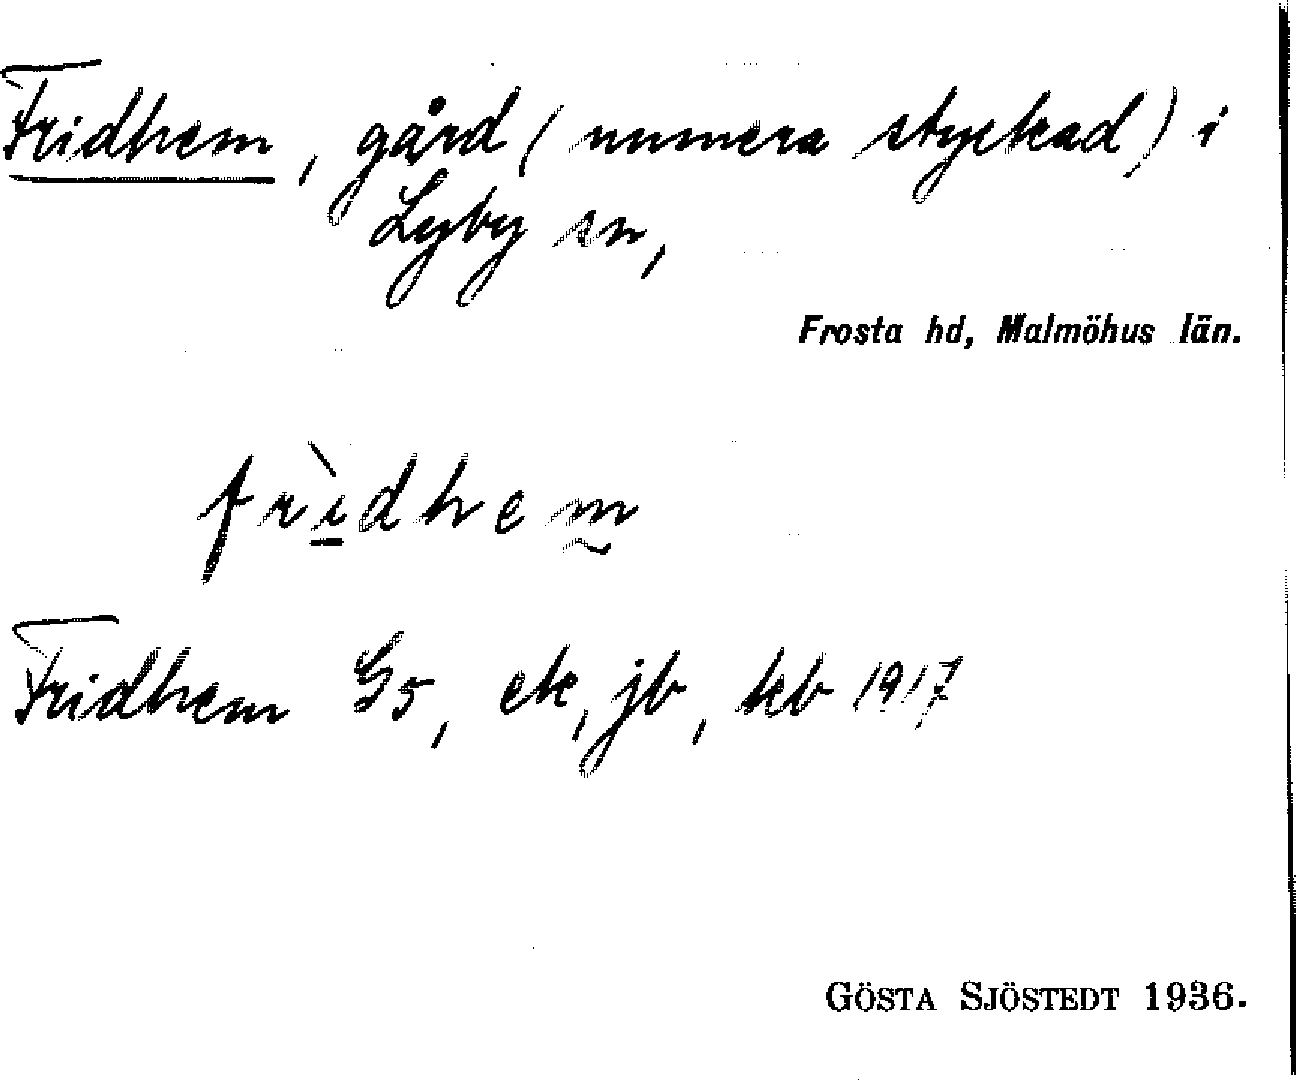 Fridhem, gård (numera styckad) i
Lyby sn,
Frosta hd, Malmöhus län.
frìdhem̰
Fridhem G5, ek, jb, kb 1917
GÖSTA SJÖSTEDT 1936.